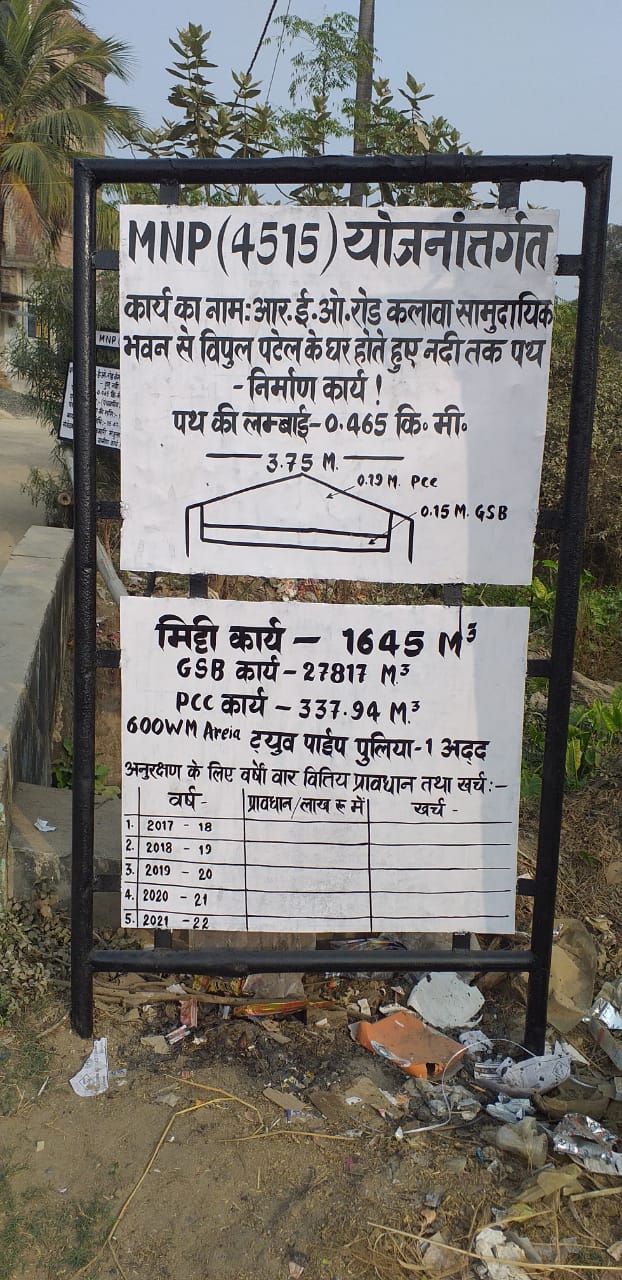 MNP (4515) योजनांत्तर्गत
कार्य का नाम:आर.ई.ओ.रोड कलावा सामुदायिक
भवन से विपुल पटेल के घर होते हुए नदी तक पथ
-निर्माण कार्य !
पथ की लम्बाई-0.465 कि॰ मी॰
3.75 M.
0.19 M. PCC
0.15 M. GSB
मिट्टी कार्य - 1645 M³
GSB कार्य - 27817 M.³
PCC कार्य - 337.94 M.³
600WM Areia ट्युव पाईप पुलिया-1 अद्द
अनुरक्षण के लिए वर्षी वार वित्तिय प्रावधान तथा खर्च:-
वर्ष- प्रावधान/लाख रु में खर्च -
1. 2017 - 18
2. 2018 - 19
3. 2019 - 20
4. 2020 - 21
5. 2021 - 22
MNP